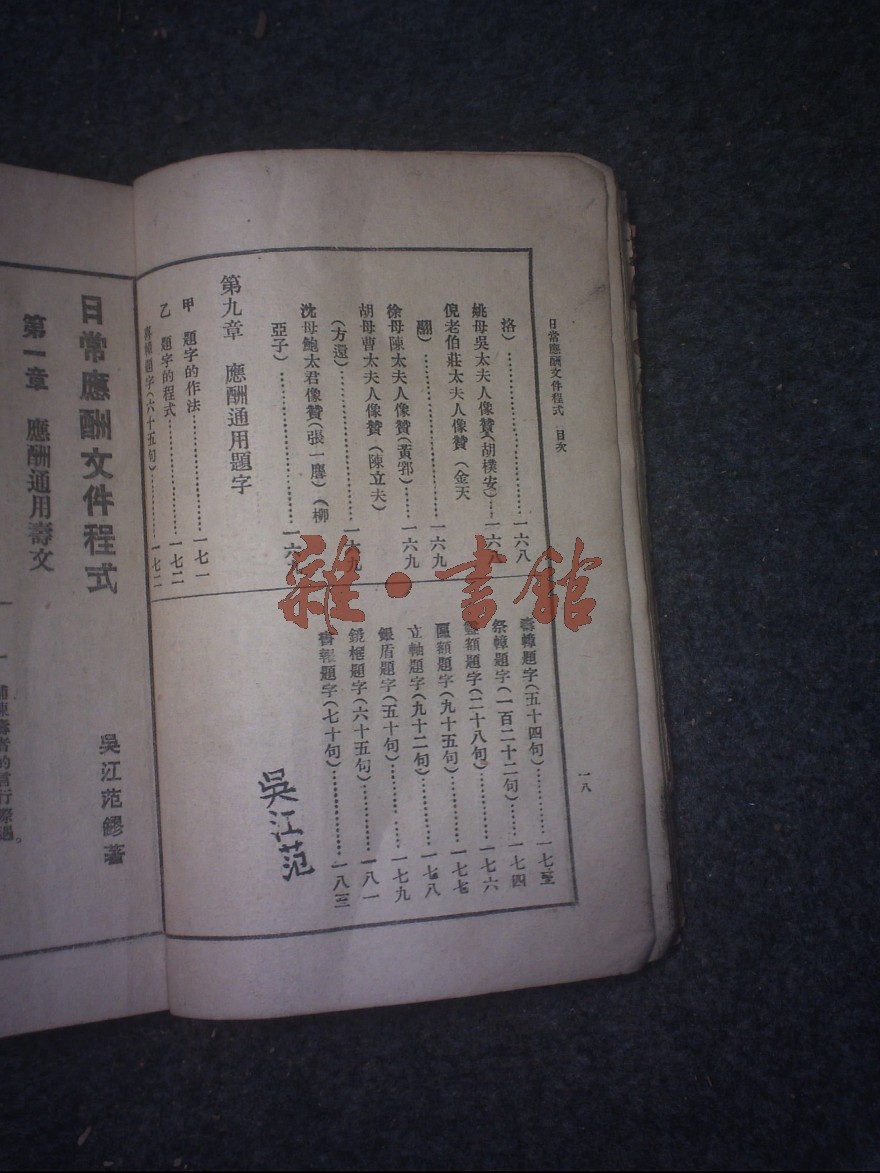 日常應酬文件程式 目次
一八
洛)……………一六八
姚母吳太夫人像贊(胡樸安)……一六八
倪老伯莊太夫人像贊(金天
翮)……………一六九
徐母陳太夫人像贊(黃郛)……一六九
胡母曹太夫人像贊(陳立夫)
(方還)……………一六九
沈母鮑太君像贊(張一麐)(柳
亞子)……………一六
第九章 應酬通用題字
甲 題字的作法……………一七一
乙 題字的程式……………一七二
喜幛題字(六十五句)……………一七二
壽幛題字(五十四句)……………一七三
祭幛題字(一百二十二句)……一七四
題字(二十八句)……………一七六
匾額題字(九十五句)……………一七七
立軸題字(九十二句)……………一七八
銀盾題字(五十句)……………一七九
鏡框題字(六十五句)……………一八一
書報題字(七十句)……………一八三
吳江范
雜·書館
日常應酬文件程式
吳江范鏐著
第一章 應酬通用壽文